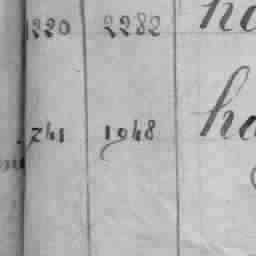 1220 2282 ha
741 1948 ha